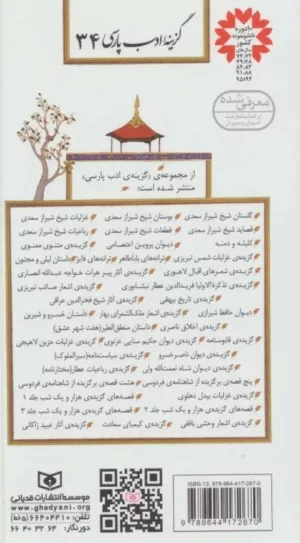 گزینهٔ ادب پارسی ۳۴
ناشر نمونه
کشور
معرفی شده
از مجموعه‌ی «گزینه‌ی ادب پارسی»
منتشر شده است:
گلستان شیخ شیراز سعدی بوستان شیخ شیراز سعدی غزلیات شیخ شیراز سعدی
قصاید شیخ شیراز سعدی قطعات شیخ شیراز سعدی رباعیات شیخ شیراز سعدی
کلیله و دمنه دیوان پروین اعتصامی گزیده‌ی مثنوی معنوی
گزیده‌ی غزلیات شمس تبریزی ترانه‌های باباطاهر ترانه‌های فایز داستان لیلی و مجنون
گزیده‌ی شعرهای اقبال لاهوری گزیده‌ی آثار پیر هرات خواجه عبدالله انصاری
گزیده‌ی تذکرةالاولیا فریدالدین عطار نیشابوری گزیده‌ی اشعار صائب تبریزی
گزیده‌ی تاریخ بیهقی گزیده‌ی آثار شیخ فخرالدین عراقی
دیوان حافظ شیرازی گزیده‌ی اشعار ملک‌الشعرای بهار داستان خسرو و شیرین
گزیده‌ی اخلاق ناصری داستان منطق‌الطیر(هفت شهر عشق)
گزیده‌ی قابوسنامه گزیده‌ی دیوان حکیم سنایی غزنوی گزیده‌ی غزلیات حزین لاهیجی
گزیده‌ی دیوان ناصرخسرو گزیده‌ی سیاست‌نامه(سیرالملوک)
گزیده‌ی دیوان شاه نعمت‌الله ولی گزیده‌ی رباعیات عطار(مختارنامه)
پنج قصه‌ی برگزیده از شاهنامه‌ی فردوسی هشت قصه‌ی برگزیده از شاهنامه‌ی فردوسی
گزیده‌ی غزلیات بیدل دهلوی قصه‌های گزیده‌ی هزار و یک شب جلد ۱
قصه‌های گزیده‌ی هزار و یک شب جلد ۲ قصه‌های گزیده‌ی هزار و یک شب جلد ۳
گزیده‌ی اشعار وحشی بافقی گزیده‌ی کیمیای سعادت گزیده‌ی آثار عبید زاکانی
موسسه انتشارات قدیانی
www.ghadyani.org
تلفن: ۶۶۴۰۴۴۱۰ (۵ خط)
دورنگار: ۶۶ ۴۰ ۳۲ ۶۴
ISBN-13: 978-964-417-287-0
9 789644 172870